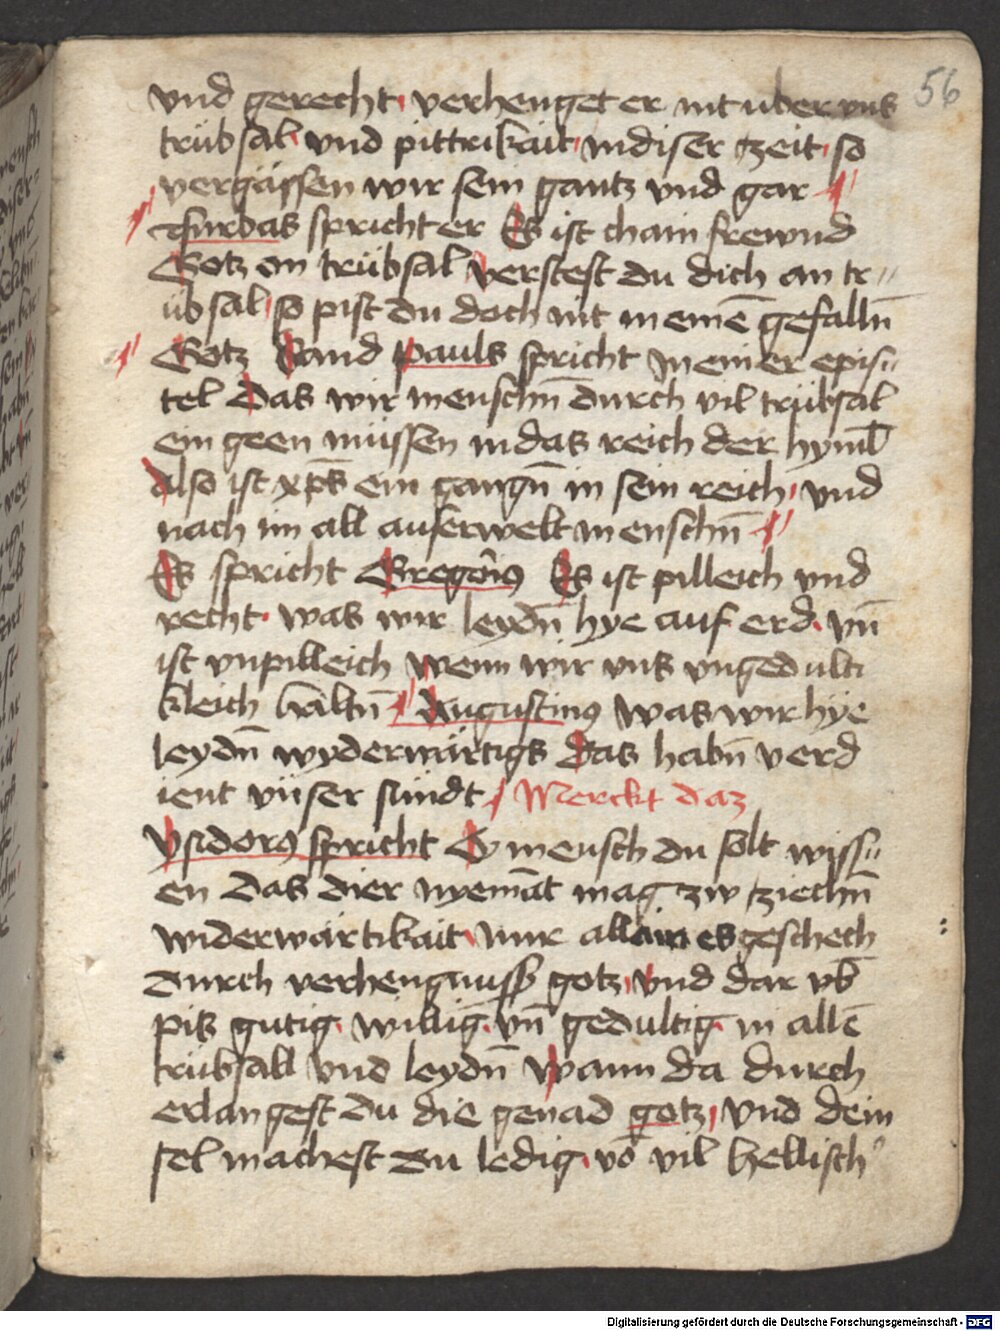 56
vnd gerecht verhenget er nit uber vns
trübsal vnd pittrikait in diser zeit so
vergässen wir sein gantz vnd gar
Furbas spricht er Es ist chain frewnd
Gotz on trübsal verstest du dich an tr„
übsal so pist du doch nit in einē gefalln̄
Gotz Sand pauls spricht in einer epis„
tel Das wir menschn̄ durch vil trübsal
ein geen müssen in das reich der hyml̄
Also ist xp̄s ein gangn̄ in sein reich vnd
nach im all auserwelt menschn̄
Es spricht Gregorius Es ist pilleich vnd
recht was wir leydn̄ hye auf erd vn̄
ist vnpilleich wenn wir vns vngedulti
kleich haltn̄ Augustinus Was wir hye
leydn̄ wyderwärtigs Das habn̄ verd
ient vnser sündt Merckt daz
Ysidorus spricht O mensch du solt wiss„
en das dier nyemāt mag zw ziechn̄
widerwärtikait nur allain es geschech
durch verhengnuss gotz vnd dar vb̄
piß gutig willig vn̄ gedultig in allē
trübsall vnd leydn̄ Wann da durch
erlangest du die genad gotz vnd dein
sel machest du ledig vō vil hellisch
Digitalisierung gefördert durch die Deutsche Forschungsgemeinschaft - DFG